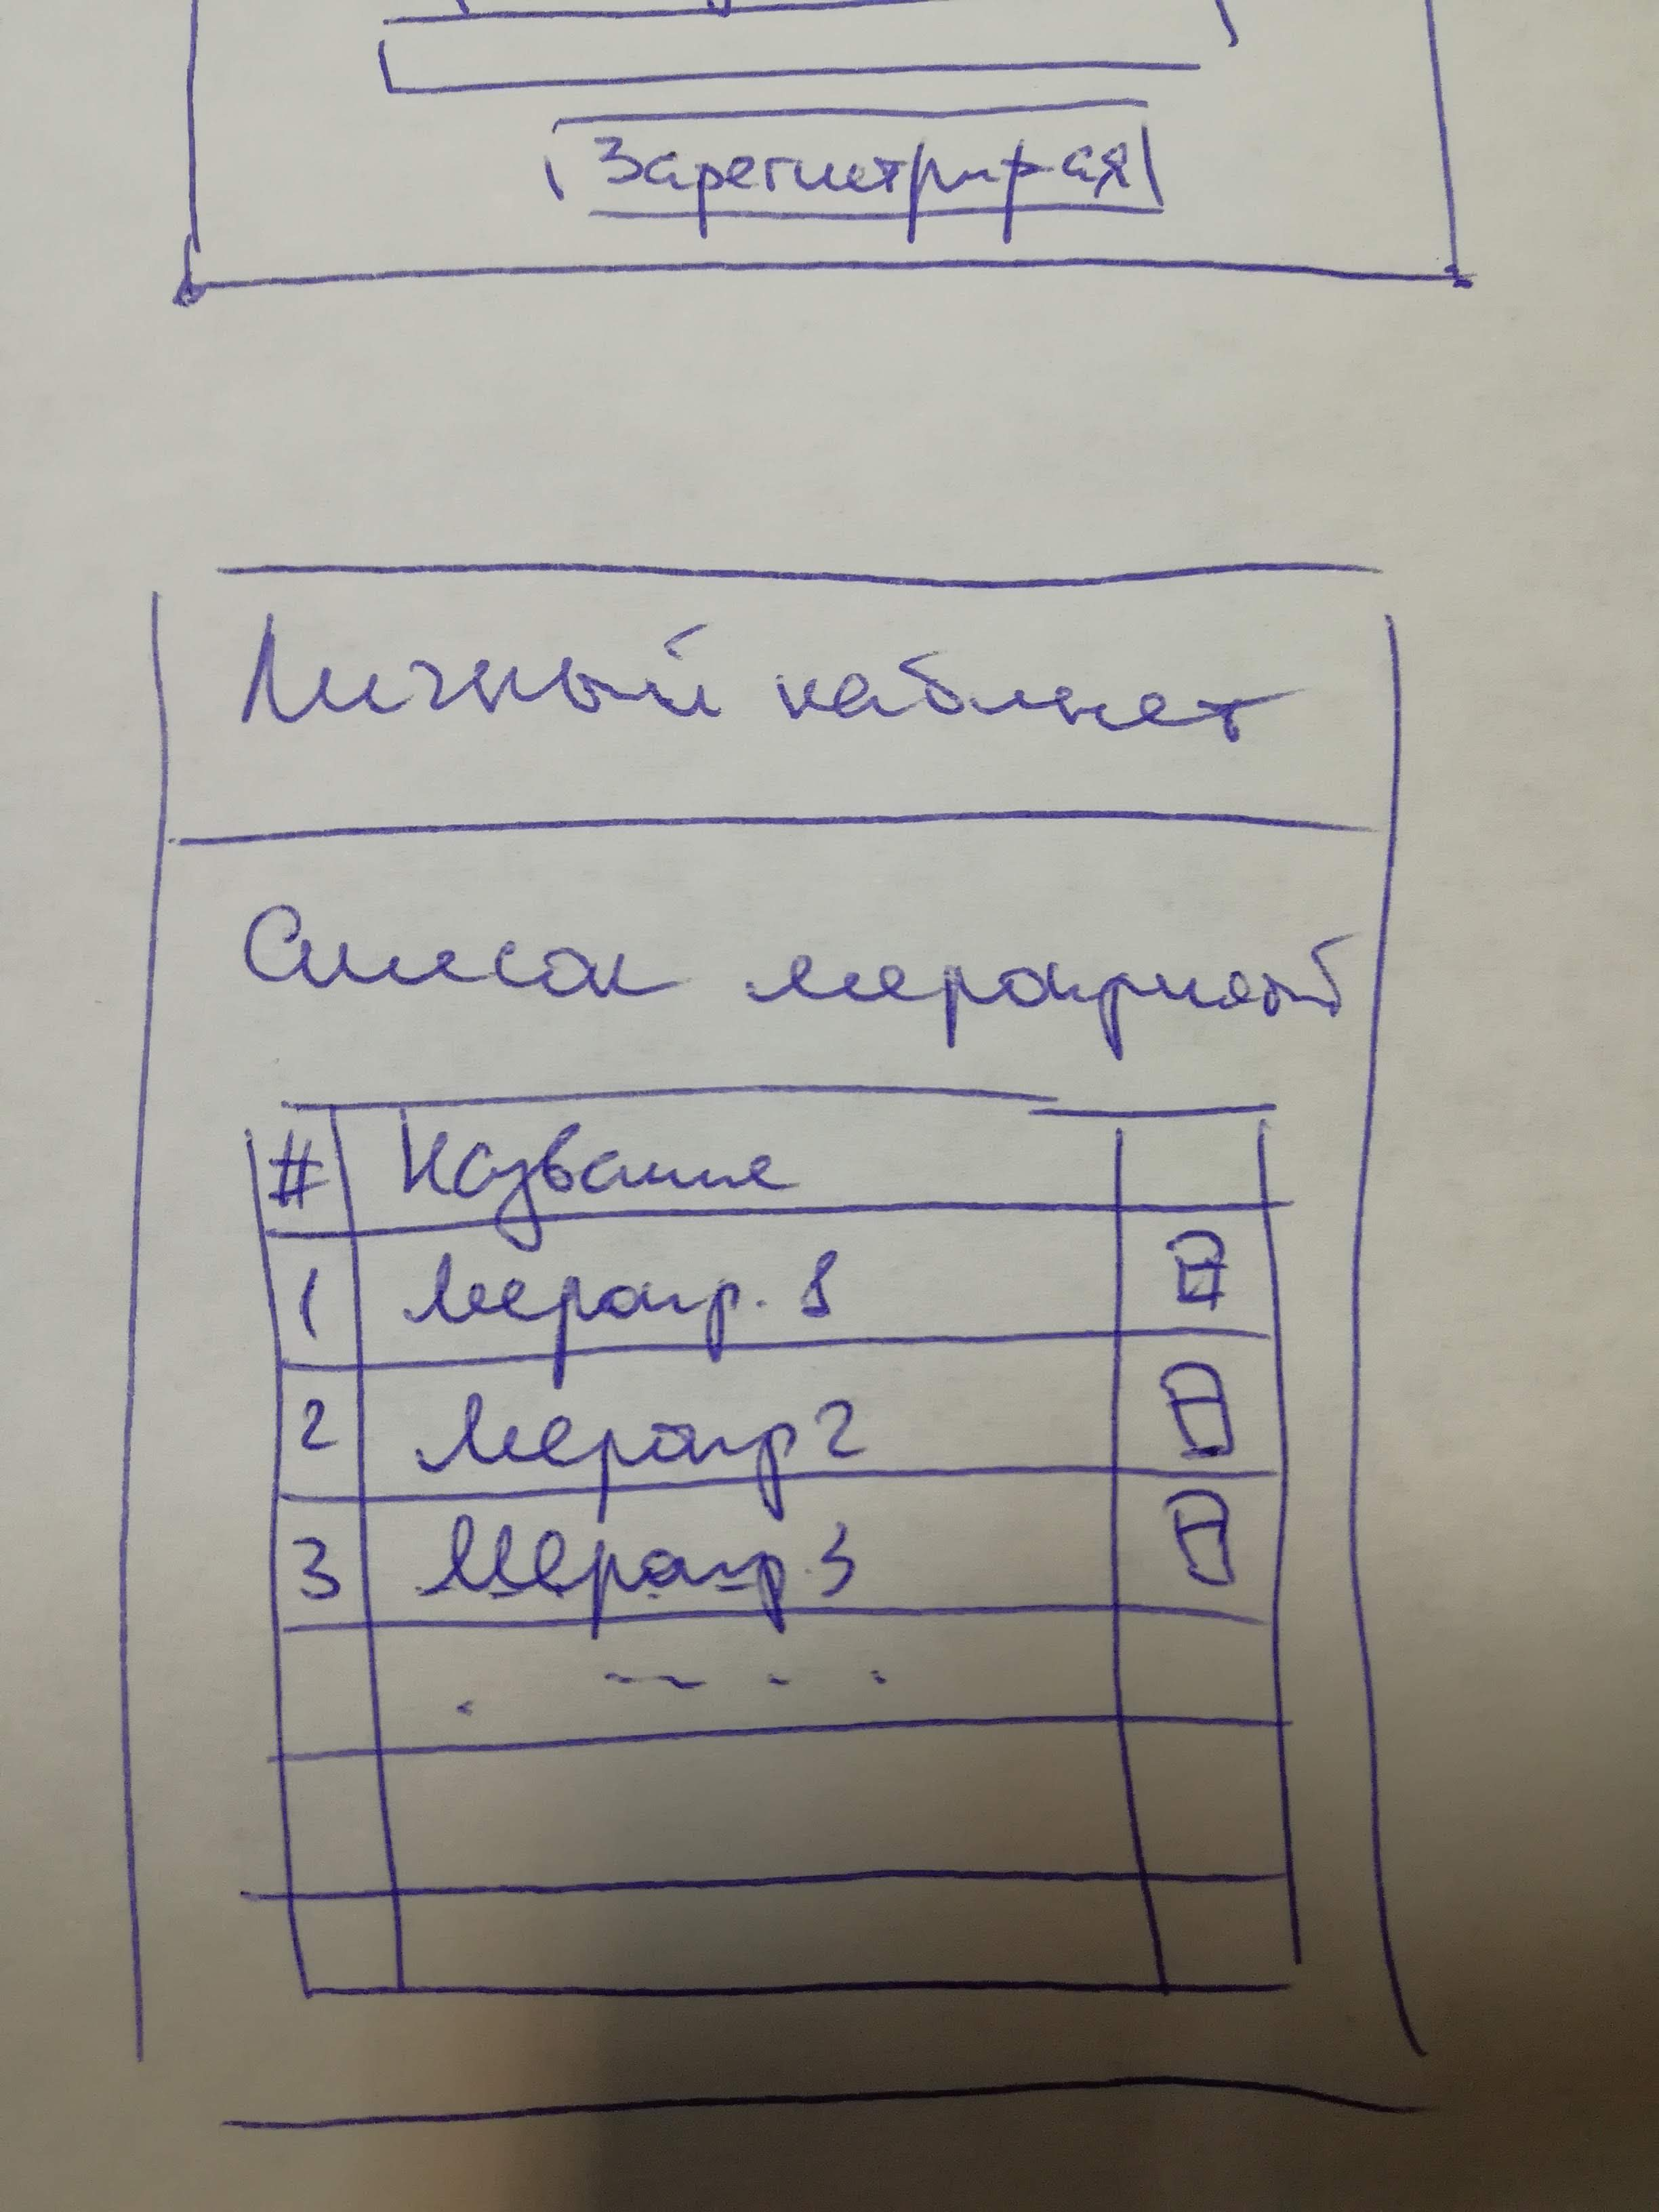 Зарегистрир-ся
Личный кабинет
Список мероприятий
# Название
1 Меропр. 1
2 Меропр 2
3 Меропр. 3